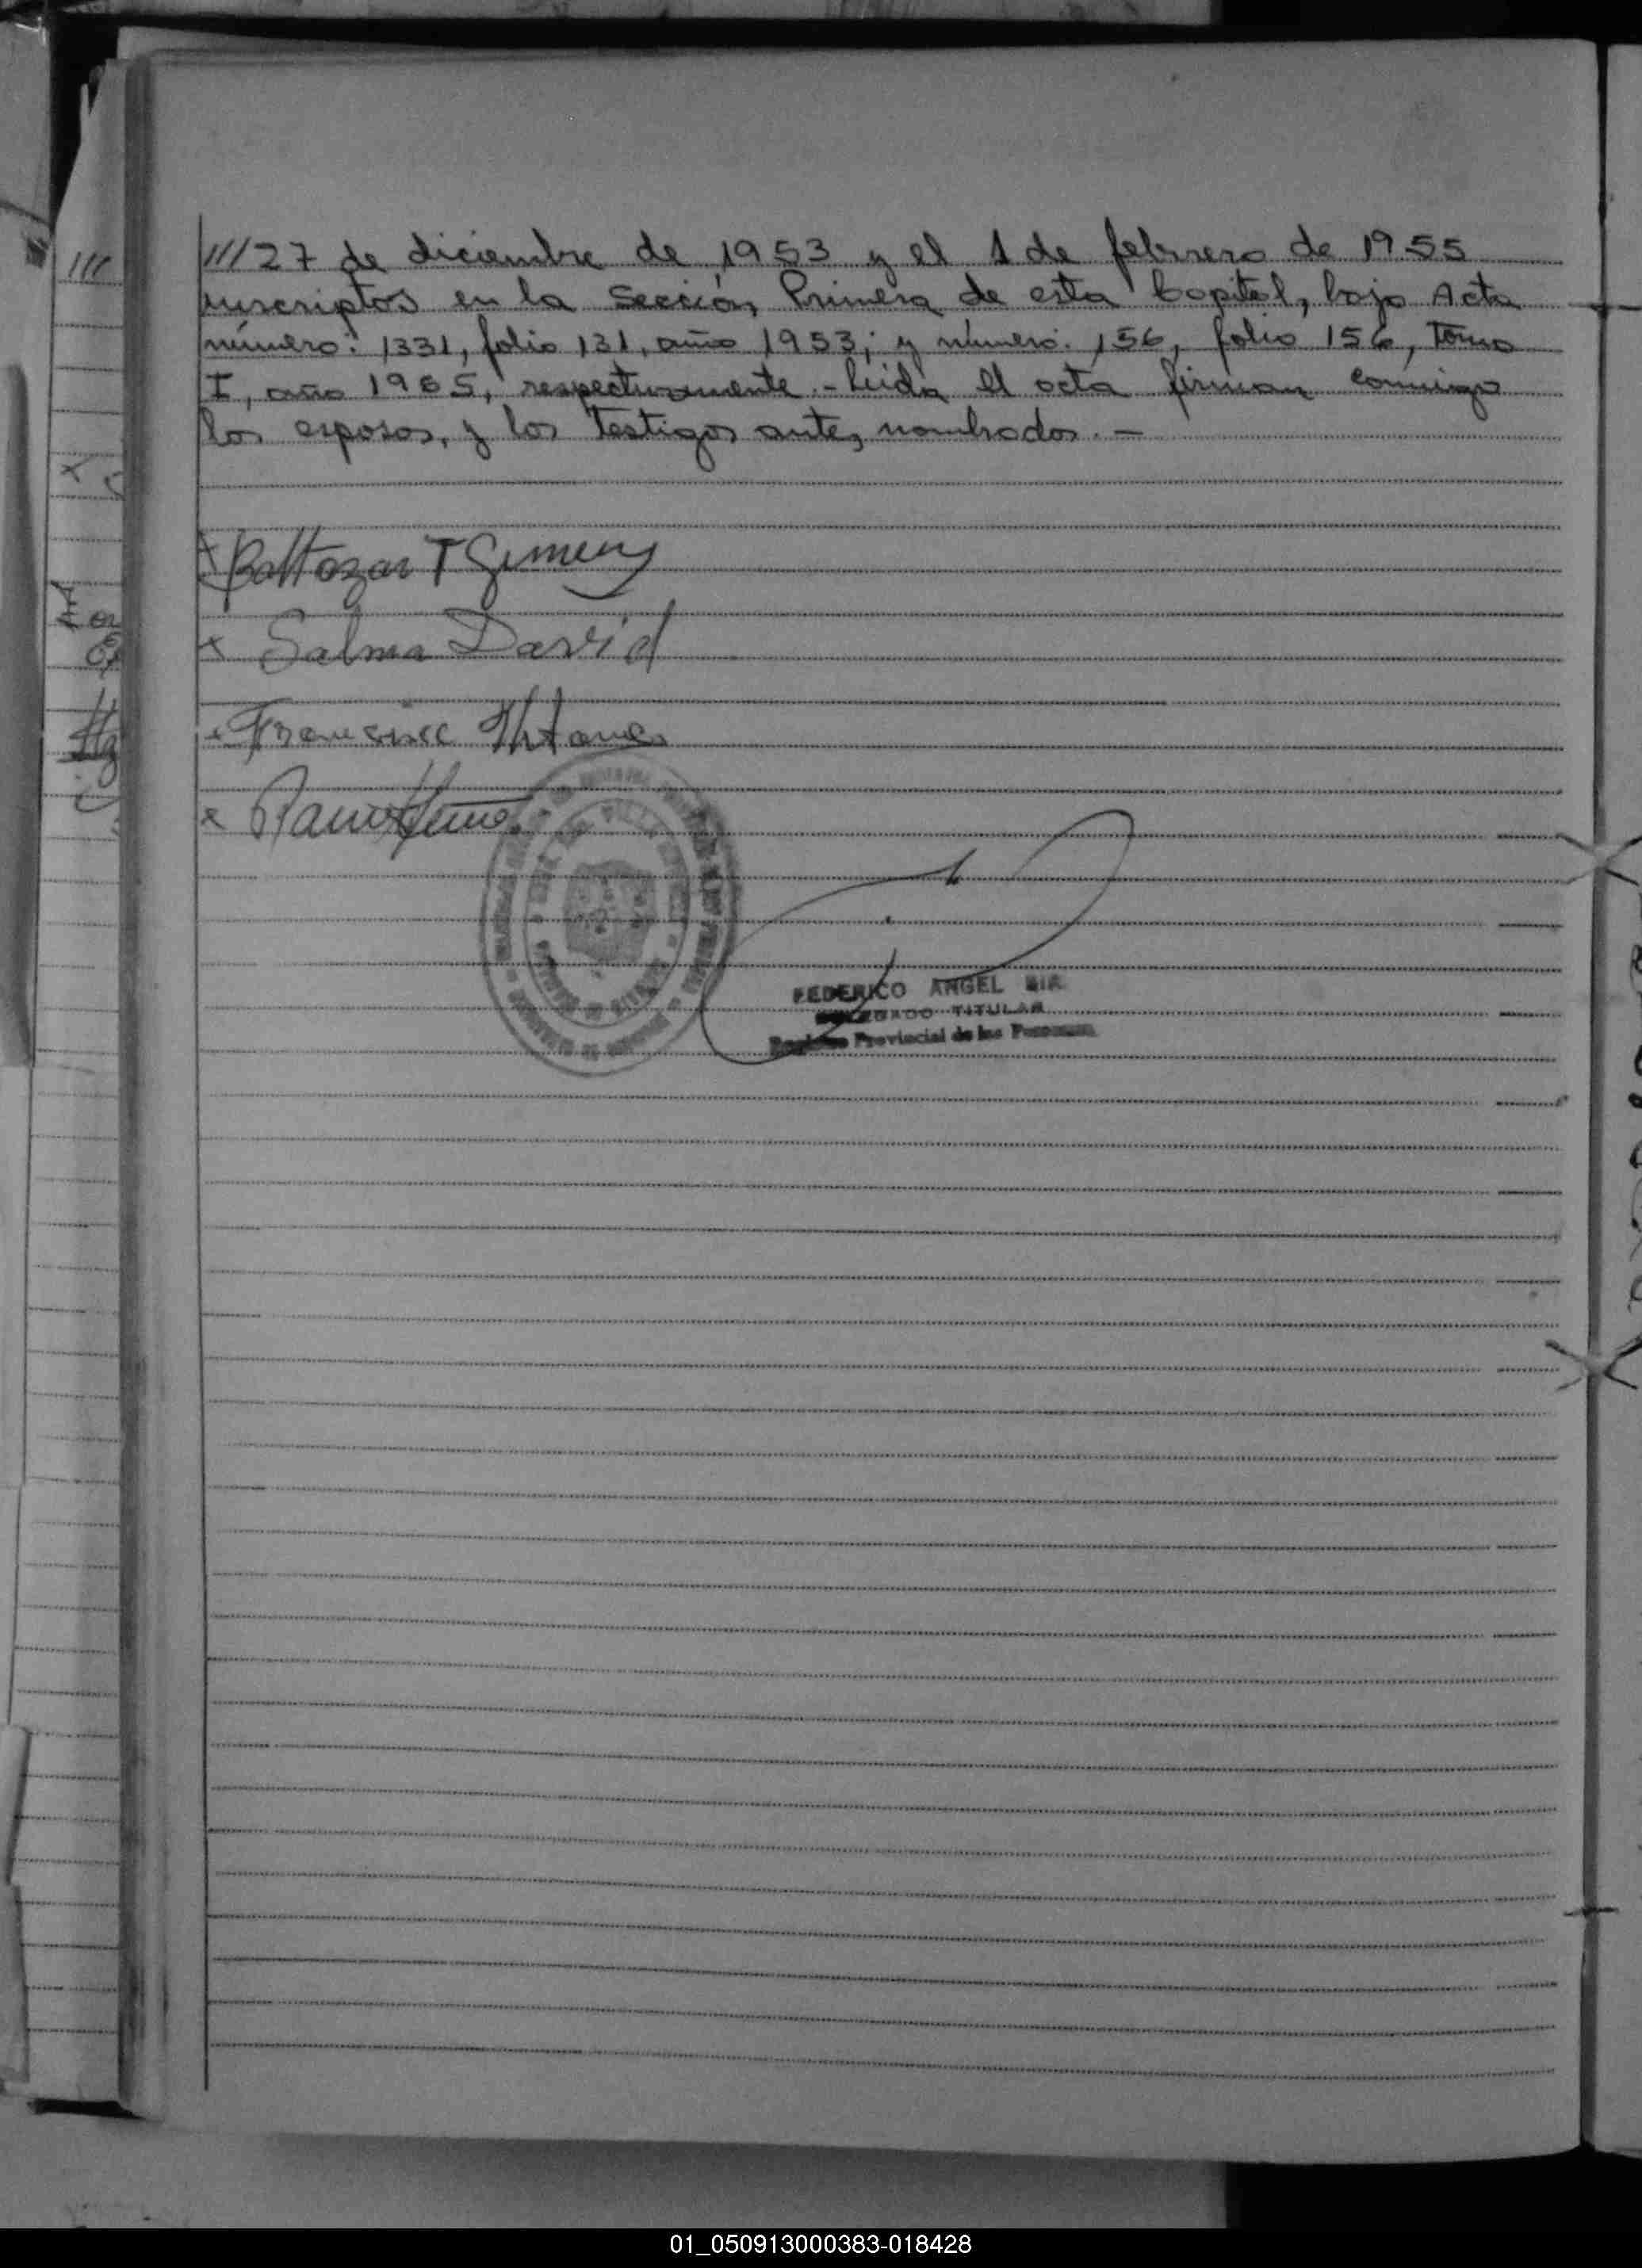 ///27 de diciembre de 1953 y el 1 de febrero de 1955
inscriptos en la Sección Primera de esta Capital, bajo Acta
número: 1331, folio 131, año 1953; y número: 156, folio 156, tomo
I, año 1965, respectivamente.- Leída el acta firman conmigo
los esposos, y los testigos antes nombrados.-
x Baltazar T Gimenez
x Salma David
x
x
FEDERICO ANGEL
TITULAR
Provincial de las Personas
///
01_050913000383-018428